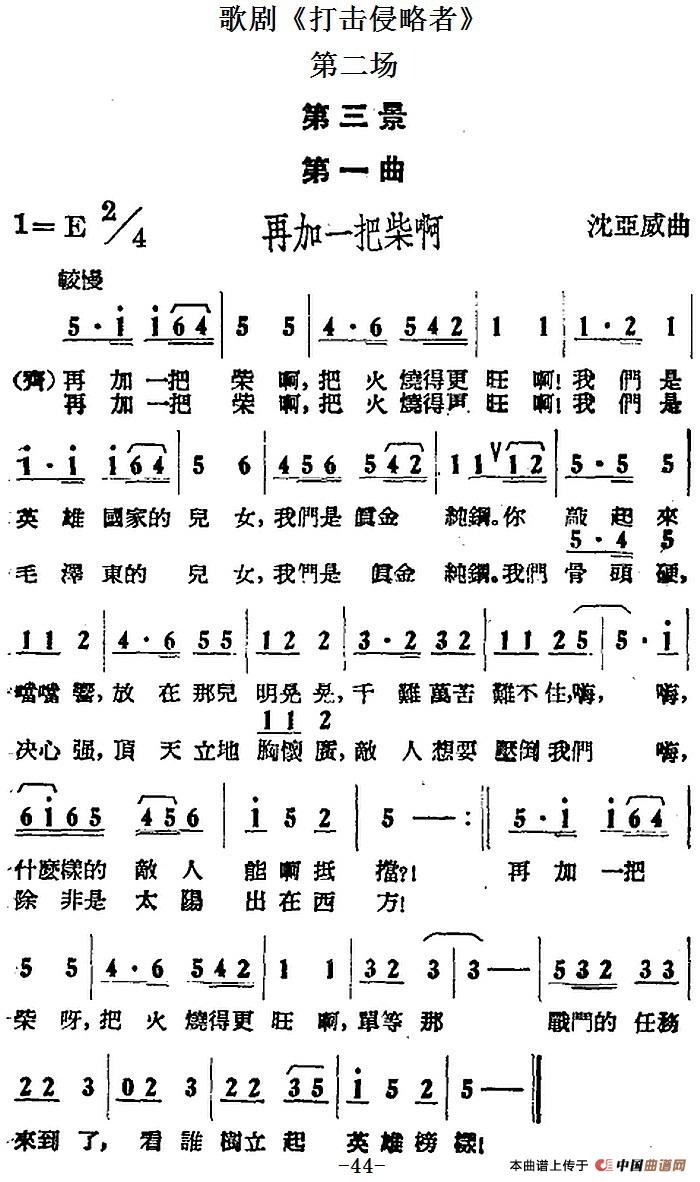 歌剧《打击侵略者》
第二场
第三景
第一曲
1=E 2/4 再加一把柴啊 沈亞威曲
较慢
5·i i64 | 5 5 | 4·6 542 | 1 1 | 1·2 1 |
(齊)再加一把 柴啊,把火燒得更旺啊!我們是
再加一把 柴啊,把火燒得更旺啊!我們是
i·i i64 | 5 6 | 456 542 | 11 V 12 | 5·5 5 |
英雄國家的兒女,我們是真金 純鋼。你 敲起來
5·4 5
毛澤東的 兒女,我們是 真金 純鋼。我們骨頭硬,
11 2 | 4·6 55 | 12 2 | 3·2 32 | 11 25 | 5·i |
噹噹響,放在那兒明晃晃,千難萬苦難不住,嗨,嗨,
11 2
决心强,頂天立地胸懷廣,敵人想要壓倒我們 嗨,
6i65 456 | i 5 2 | 5 — :‖ 5·i i64 |
什麼樣的敵人 能啊抵擋?! 再加一把
除非是太陽 出在西方!
5 5 | 4·6 542 | 1 1 | 32 3 | 3 — | 532 33 |
柴呀,把火燒得更旺啊,單等那 戰鬥的任務
22 3 | 02 3 | 22 2 35 | i 5 2 | 5 — ‖
來到了,看誰樹立起 英雄榜樣!
-44-
本曲谱上传于 中国曲谱网